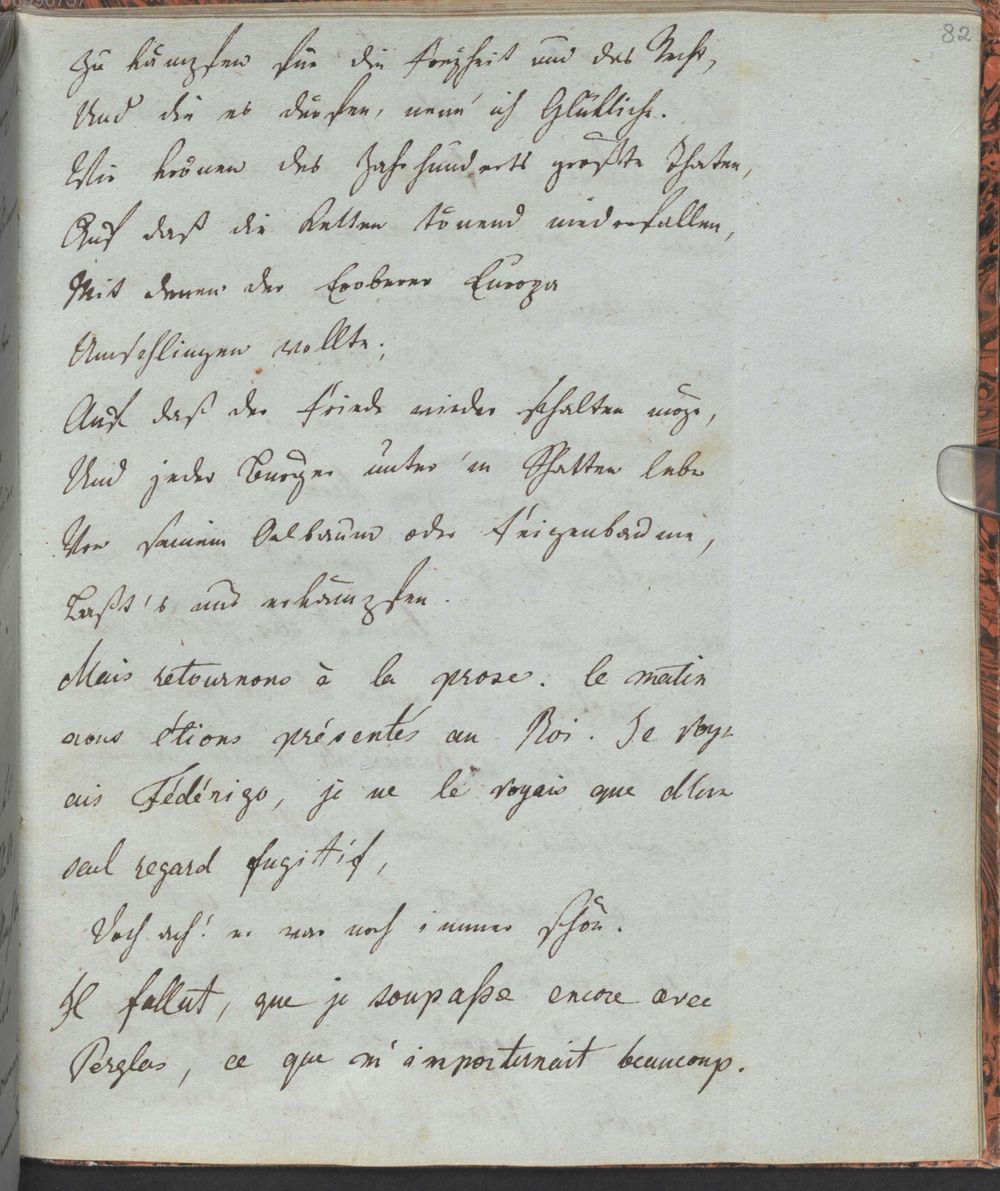 82
Zu kämpfen für die Freyheit und das Recht,
Und die es dürfen, nenn' ich Glückliche.
Wir krönen des Jahrhunderts größte Thaten,
Auf daß die Ketten tönend niederfallen,
Mit denen der Eroberer Europa
Umschlingen wollte;
Auf daß der Friede wieder schalten möge,
Und jeder Bürger unter'm Schatten lebe
Von seinem Oelbaum oder Feigenbaume,
Laßt's uns erkämpfen.
Mais retournons à la prose. le matin
nous étions présentés au Roi. Je voy-
ais Fédérigo, je ne le voyais que d'un
seul regard fugittif,
Doch ach! er war noch immer schön.
Il fallut, que je soupasse encore avec
Perglas, ce que m'importunait beaucoup.